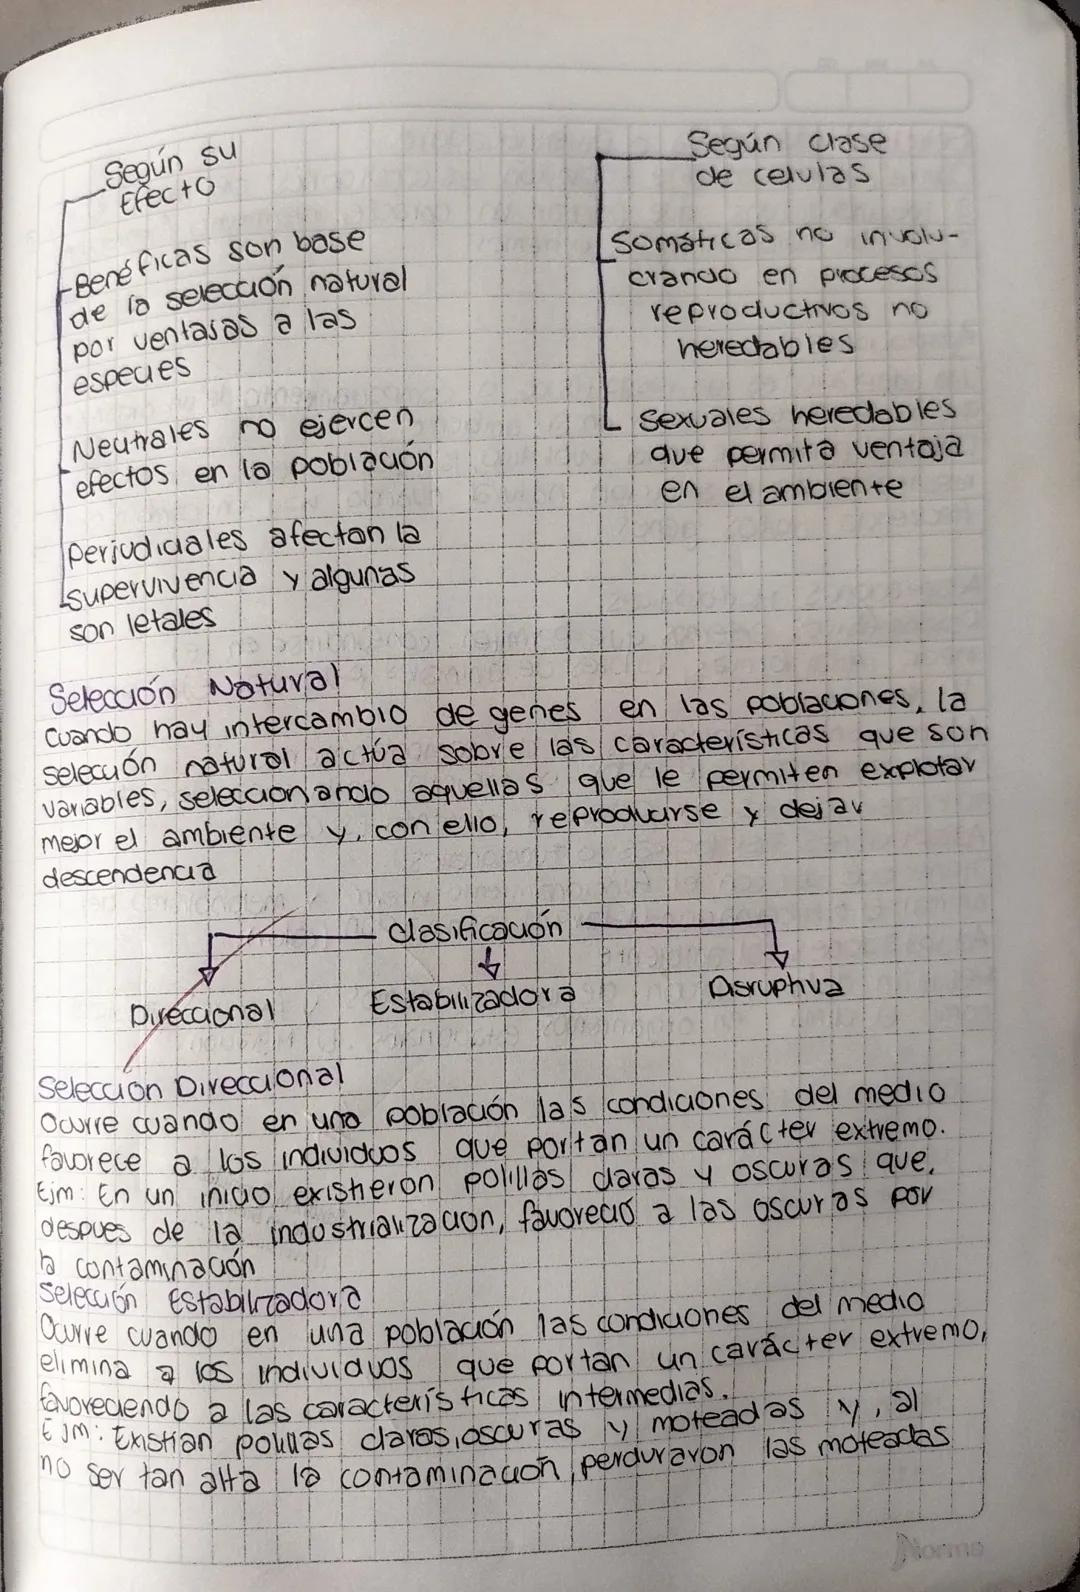 Según su
Efecto
Benéficas son base
de la selección natural
por ventajas a las
especies
Neutrales no ejercen
efectos en la población
Perjudiciales afectan la
supervivencia y algunas
son letales
Según clase
de celulas
Somáticas no involu-
crando en procesos
reproductivos no
heredables
Sexuales heredables
que permita ventaja
en el ambiente
Selección Natural
Cuando hay intercambio de genes en las poblaciones, la
selección natural actúa sobre las características que son
variables, seleccionando aquellas que le permiten explotar
mejor el ambiente y, con ello, reproducirse y dejar
descendencia
Clasificación
Direccional
Estabilizadora
Disruptiva
Selección Direccional
Ocurre cuando en una población las condiciones del medio
favorece a los individuos que portan un carácter extremo.
Ejm: En un inicio existieron polillas claras y oscuras que,
despues de la industrialización, favoreció a las oscuras por
la contaminación
Selección Estabilizadora
Ocurre cuando en una población las condiciones del medio
elimina a los individuos que portan un carácter extremo,
favoreciendo a las características intermedias.
Ejm: Existian polillas claras, oscuras y moteadas y, al
no ser tan alta la contaminación, perduraron las moteadas
Norma